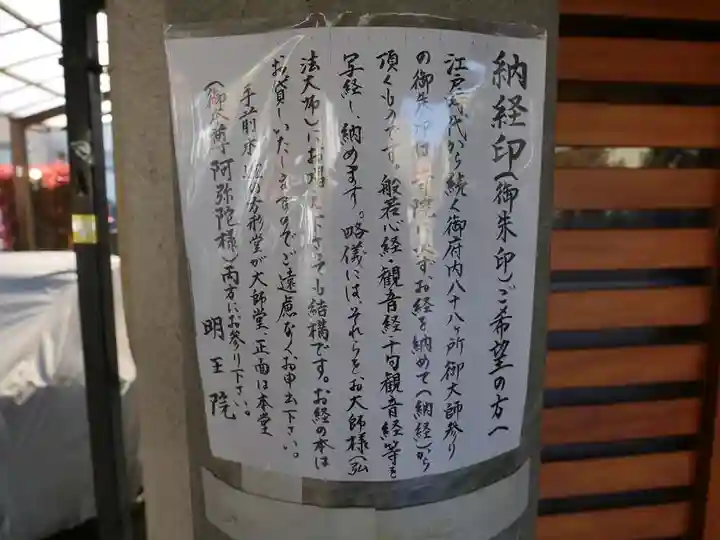 納経印(御朱印)ご希望の方へ
江戸時代から続く御府内八十八ヶ所御大師参り
の御朱印は 必ず、お経を納めて(納経)から
頂くものです。般若心経・観音経・十句観音経等を
写経し、納めます。略儀には、それらをお大師様(弘
法大師)にお唱え下さっても結構です。お経の本は
お貸しいたしますのでご遠慮なくお申出下さい。
手前 の方形堂が大師堂、正面は本堂
(御本尊 阿弥陀様)両方にお参り下さい。
明王院